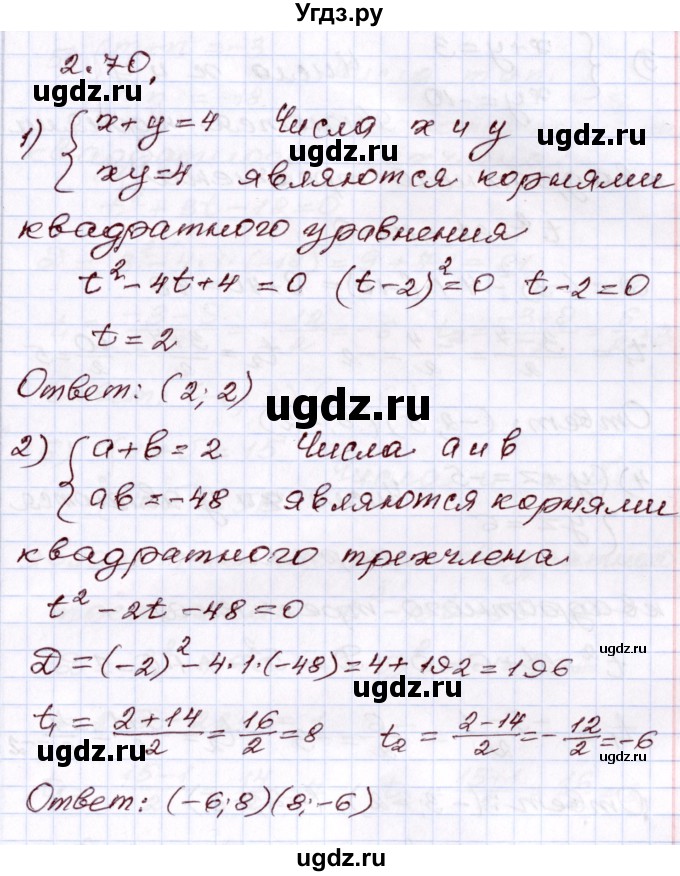 Угдз.ру
2.70.
ugdz.ru
1) { x+y=4 Числа x и y
ugdz.ru
xy=4 являются корнями
квадратного уравнения
t² - 4t + 4 = 0 (t-2)² = 0 t - 2 = 0
t = 2
Ответ: (2; 2)
ugdz.ru
2) { a + b = 2 Числа a и b
ab = -48 являются корнями
ugdz.ru ugdz.ru
квадратного трехчлена
t² - 2t - 48 = 0
ugdz.ru
D = (-2)² - 4·1·(-48) = 4 + 192 = 196
ugdz.ru
t₁ = (2+14)/2 = 16/2 = 8 t₂ = (2-14)/2 = -12/2 = -6
ugdz.ru ugdz.ru
Ответ: (-6; 8) (8; -6)
ugdz.ru